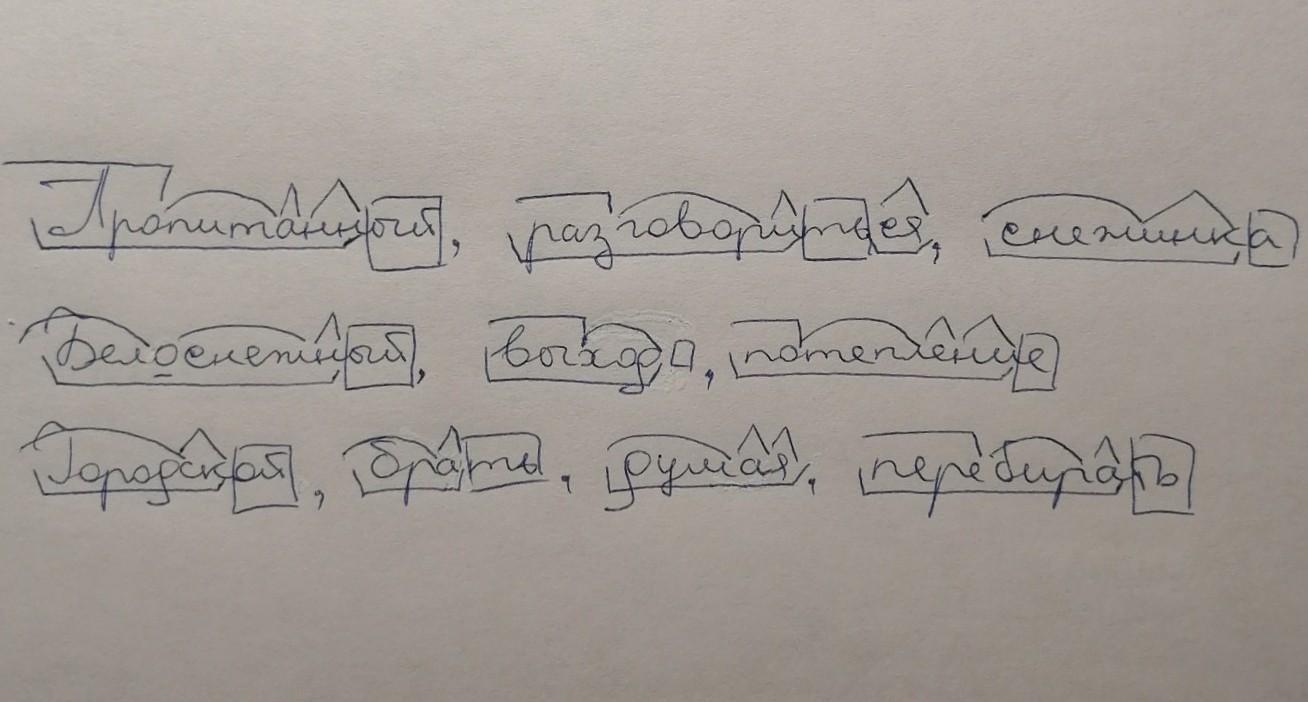 Пропитанный, разговориться, снежинка
Белоснежный, выход, потепление
Городской, браты, думая, перебирать